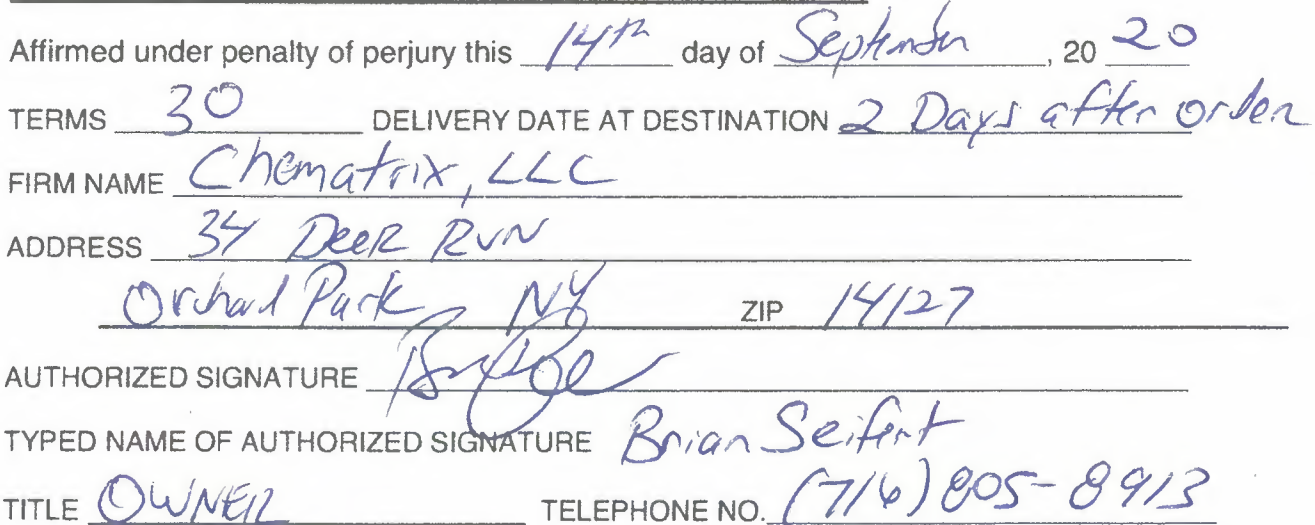 Affirmed under penalty of perjury this 14th day of September, 20 20
TERMS 30 DELIVERY DATE AT DESTINATION 2 Days after order
FIRM NAME Chematrix, LLC
ADDRESS 34 Deer Run
Orchard Park NY ZIP 14127
AUTHORIZED SIGNATURE
TYPED NAME OF AUTHORIZED SIGNATURE Brian Seifert
TITLE OWNER TELEPHONE NO. (716) 805-8913